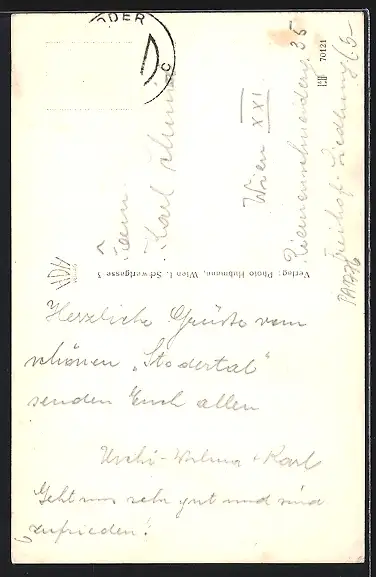 ODER
Fam.
Karl
Wien XXI
Riemenschneiderg. 35
Freihof-Siedlung
70121
Verlag: Photo Hubmann, Wien I, Schwertgasse 3
Herzliche Grüße vom
schönen „Stodertal"
senden Euch allen
Uschi - Wilma + Karl
Geht uns sehr gut und sind
zufrieden!